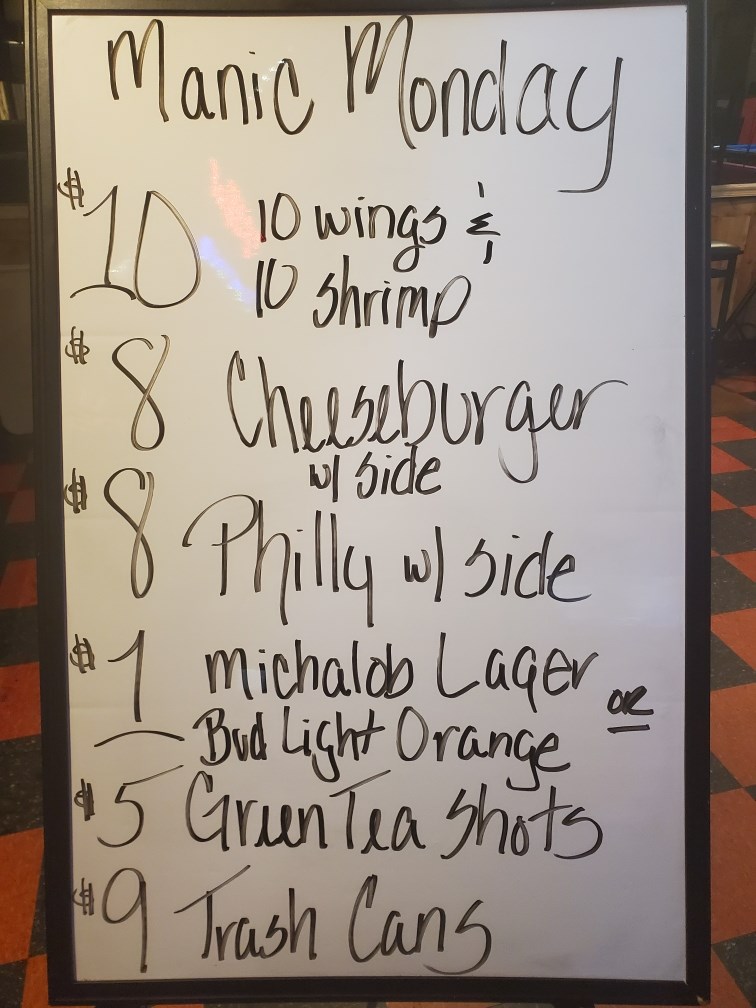 Manic Monday
$10 10 wings &
10 shrimp
$8 Cheeseburger
w/ side
$8 Philly w/ side
$1 Michalob Lager or
Bud Light Orange
$5 Green Tea Shots
$9 Trash Cans